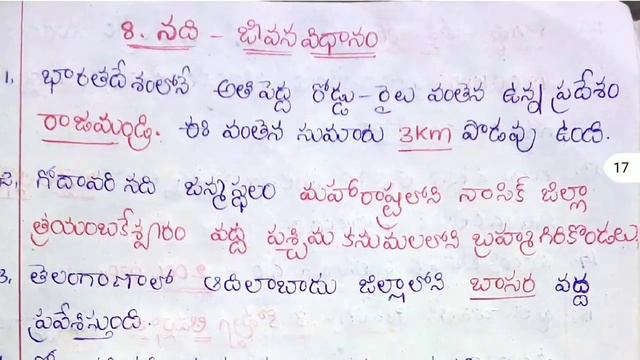 8. నది - జీవన విధానం
1, భారతదేశంలోనే అతి పెద్ద రోడ్డు - రైలు వంతెన ఉన్న ప్రదేశం
రాజమండ్రి. ఈ వంతెన సుమారు 3km పొడవు ఉంది.
17
2, గోదావరి నది జన్మస్థలం మహారాష్ట్రలోని నాసిక్ జిల్లా
త్రయంబకేశ్వారం వద్ద పశ్చిమ కనుమలలోని బ్రహ్మగిరి కొండలు.
3, తెలంగాణాలో ఆదిలాబాదు జిల్లాలోని బాసర వద్ద
ప్రవేశిస్తుంది.